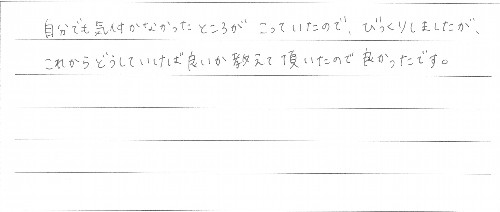 自分でも気付かなかったところが こっていたので、びっくりしましたが、
これからどうしていけば良いか教えて頂いたので良かったです。